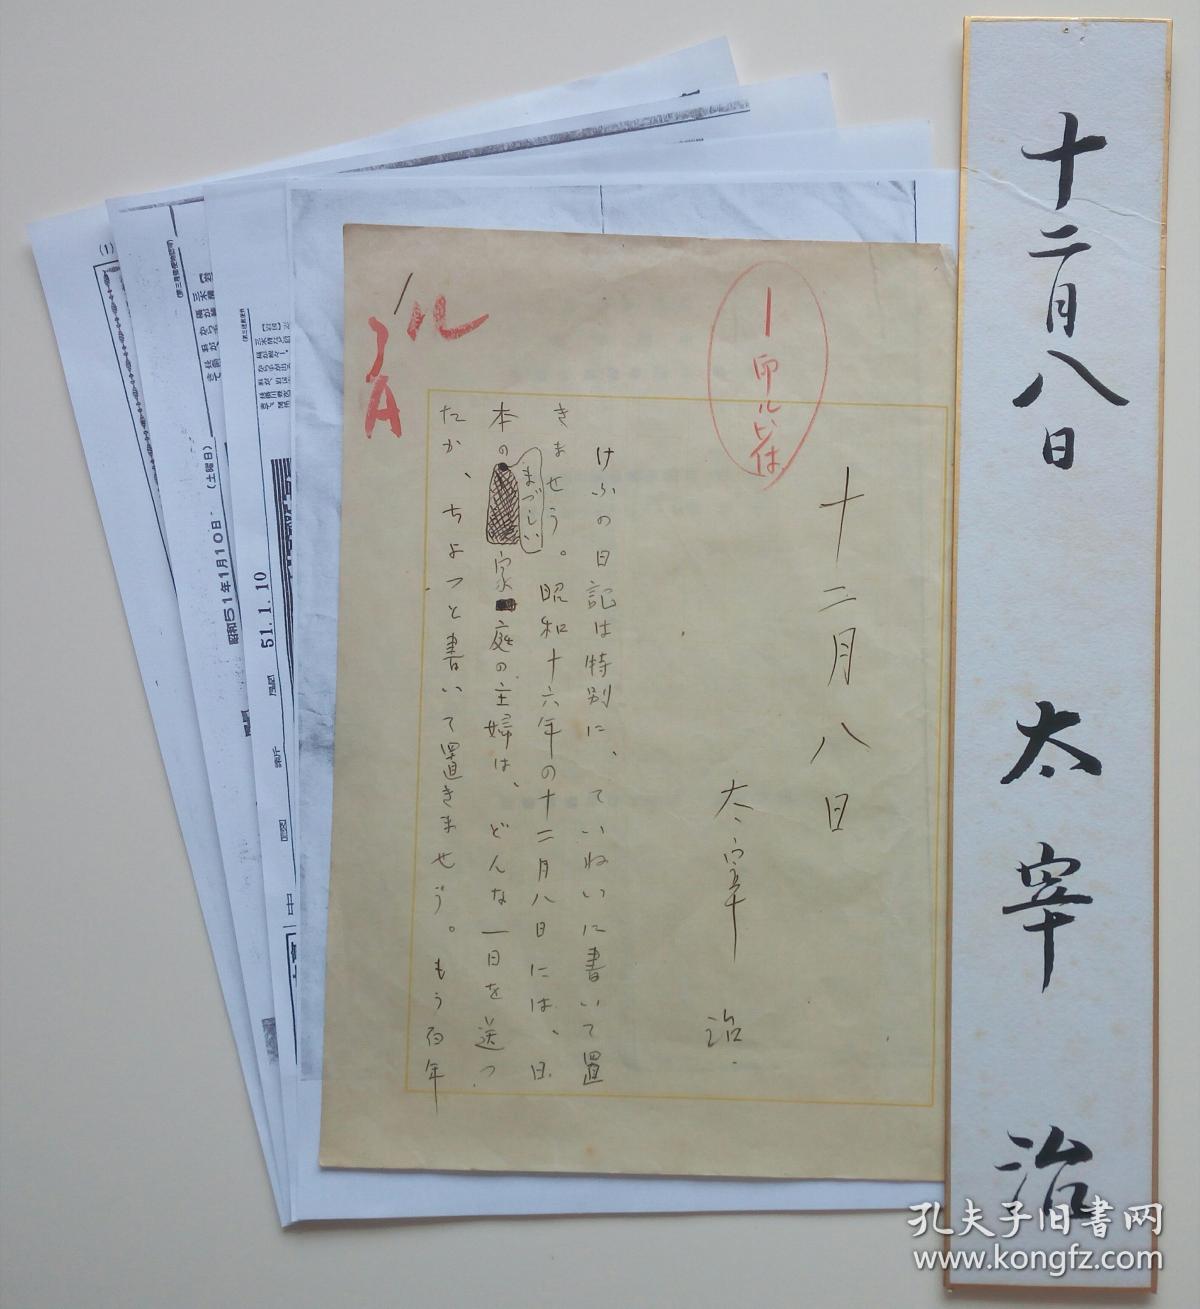 十二月八日 太宰 治
十二月八日
太宰 治
けふの日記は特別に、ていねいに書いて置
きませう。昭和十六年の十二月八日には、日
本のまづしい家庭の主婦は、どんな一日を送つ
たか、ちよつと書いて置きませう。もう百年
A
(1)
昭和51年1月10日
(土曜日)
51.1.10
孔夫子旧书网
www.kongfz.com